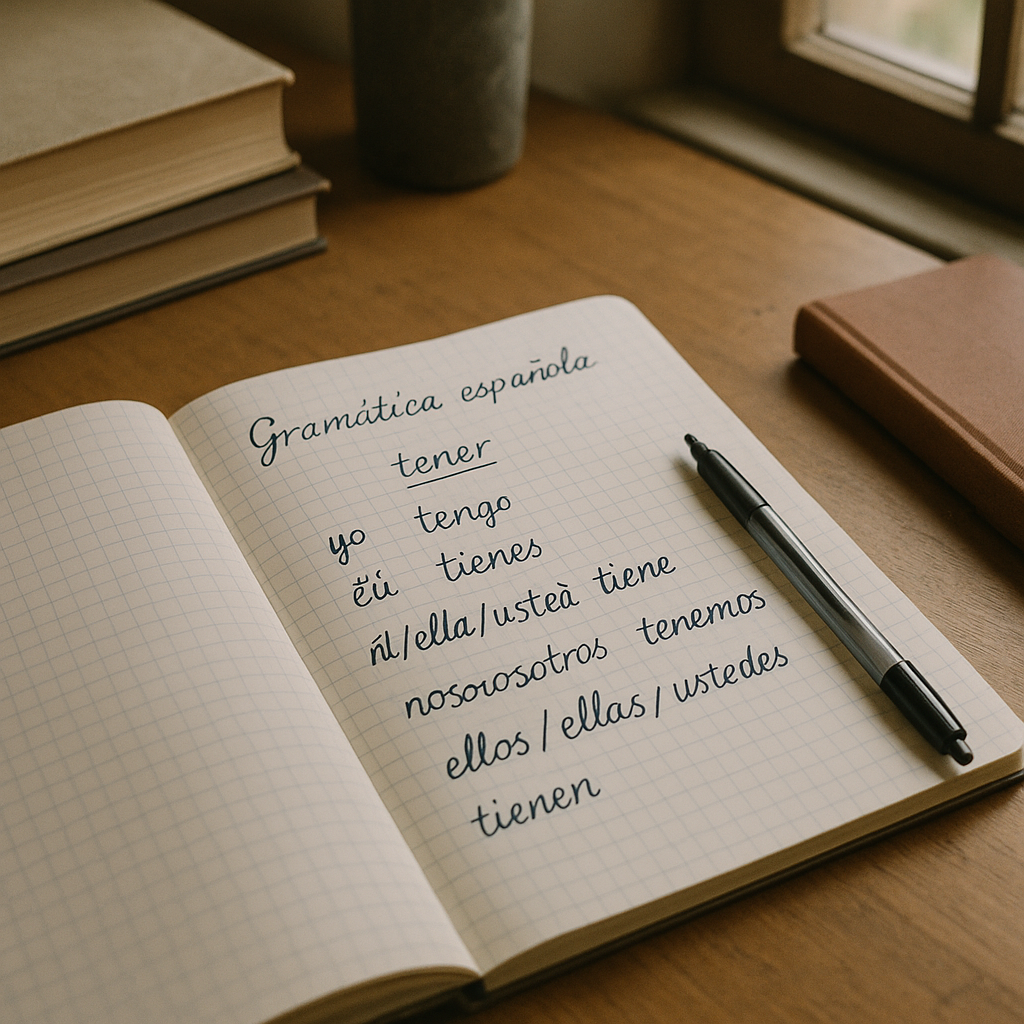 Gramática española
tener
yo tengo
ĕú tienes
ńl/ella/usteà tiene
nosorosotros tenemos
ellos / ellas / ustedes
tienen